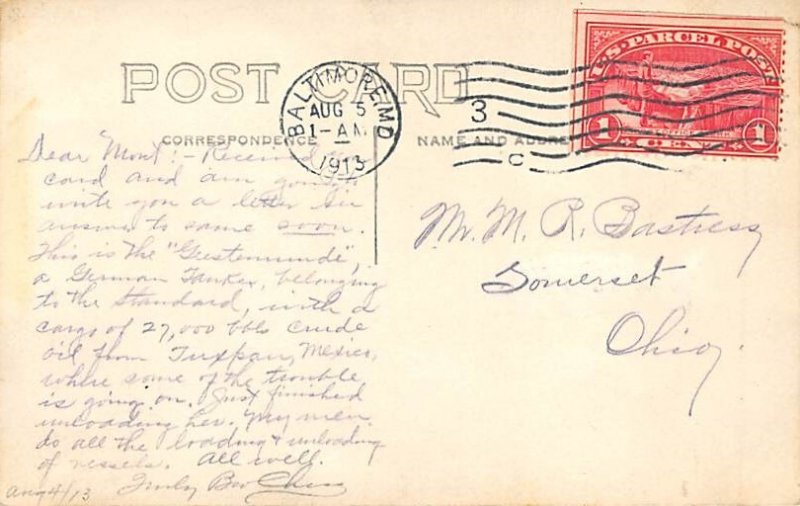 POST CARD
CORRESPONDENCE
NAME AND ADDRE
BALTIMORE, MD
AUG 5
1-AM
1913
3
C
U.S. PARCEL POST
1 CENT 1
Dear Mont:- Received
card and am going
write you a letter in
answer to same soon.
This is the "Geestemunde",
a German Tanker, belonging
to the Standard, with a
cargo of 27,000 bbls crude
oil from Tuxpan, Mexico,
where some of the trouble
is going on. Just finished
unloading her. My men
do all the loading & unloading
of vessels. All well.
Truly Bro
Aug 4/13
Mr. M. R. Bastress
Somerset
Ohio.